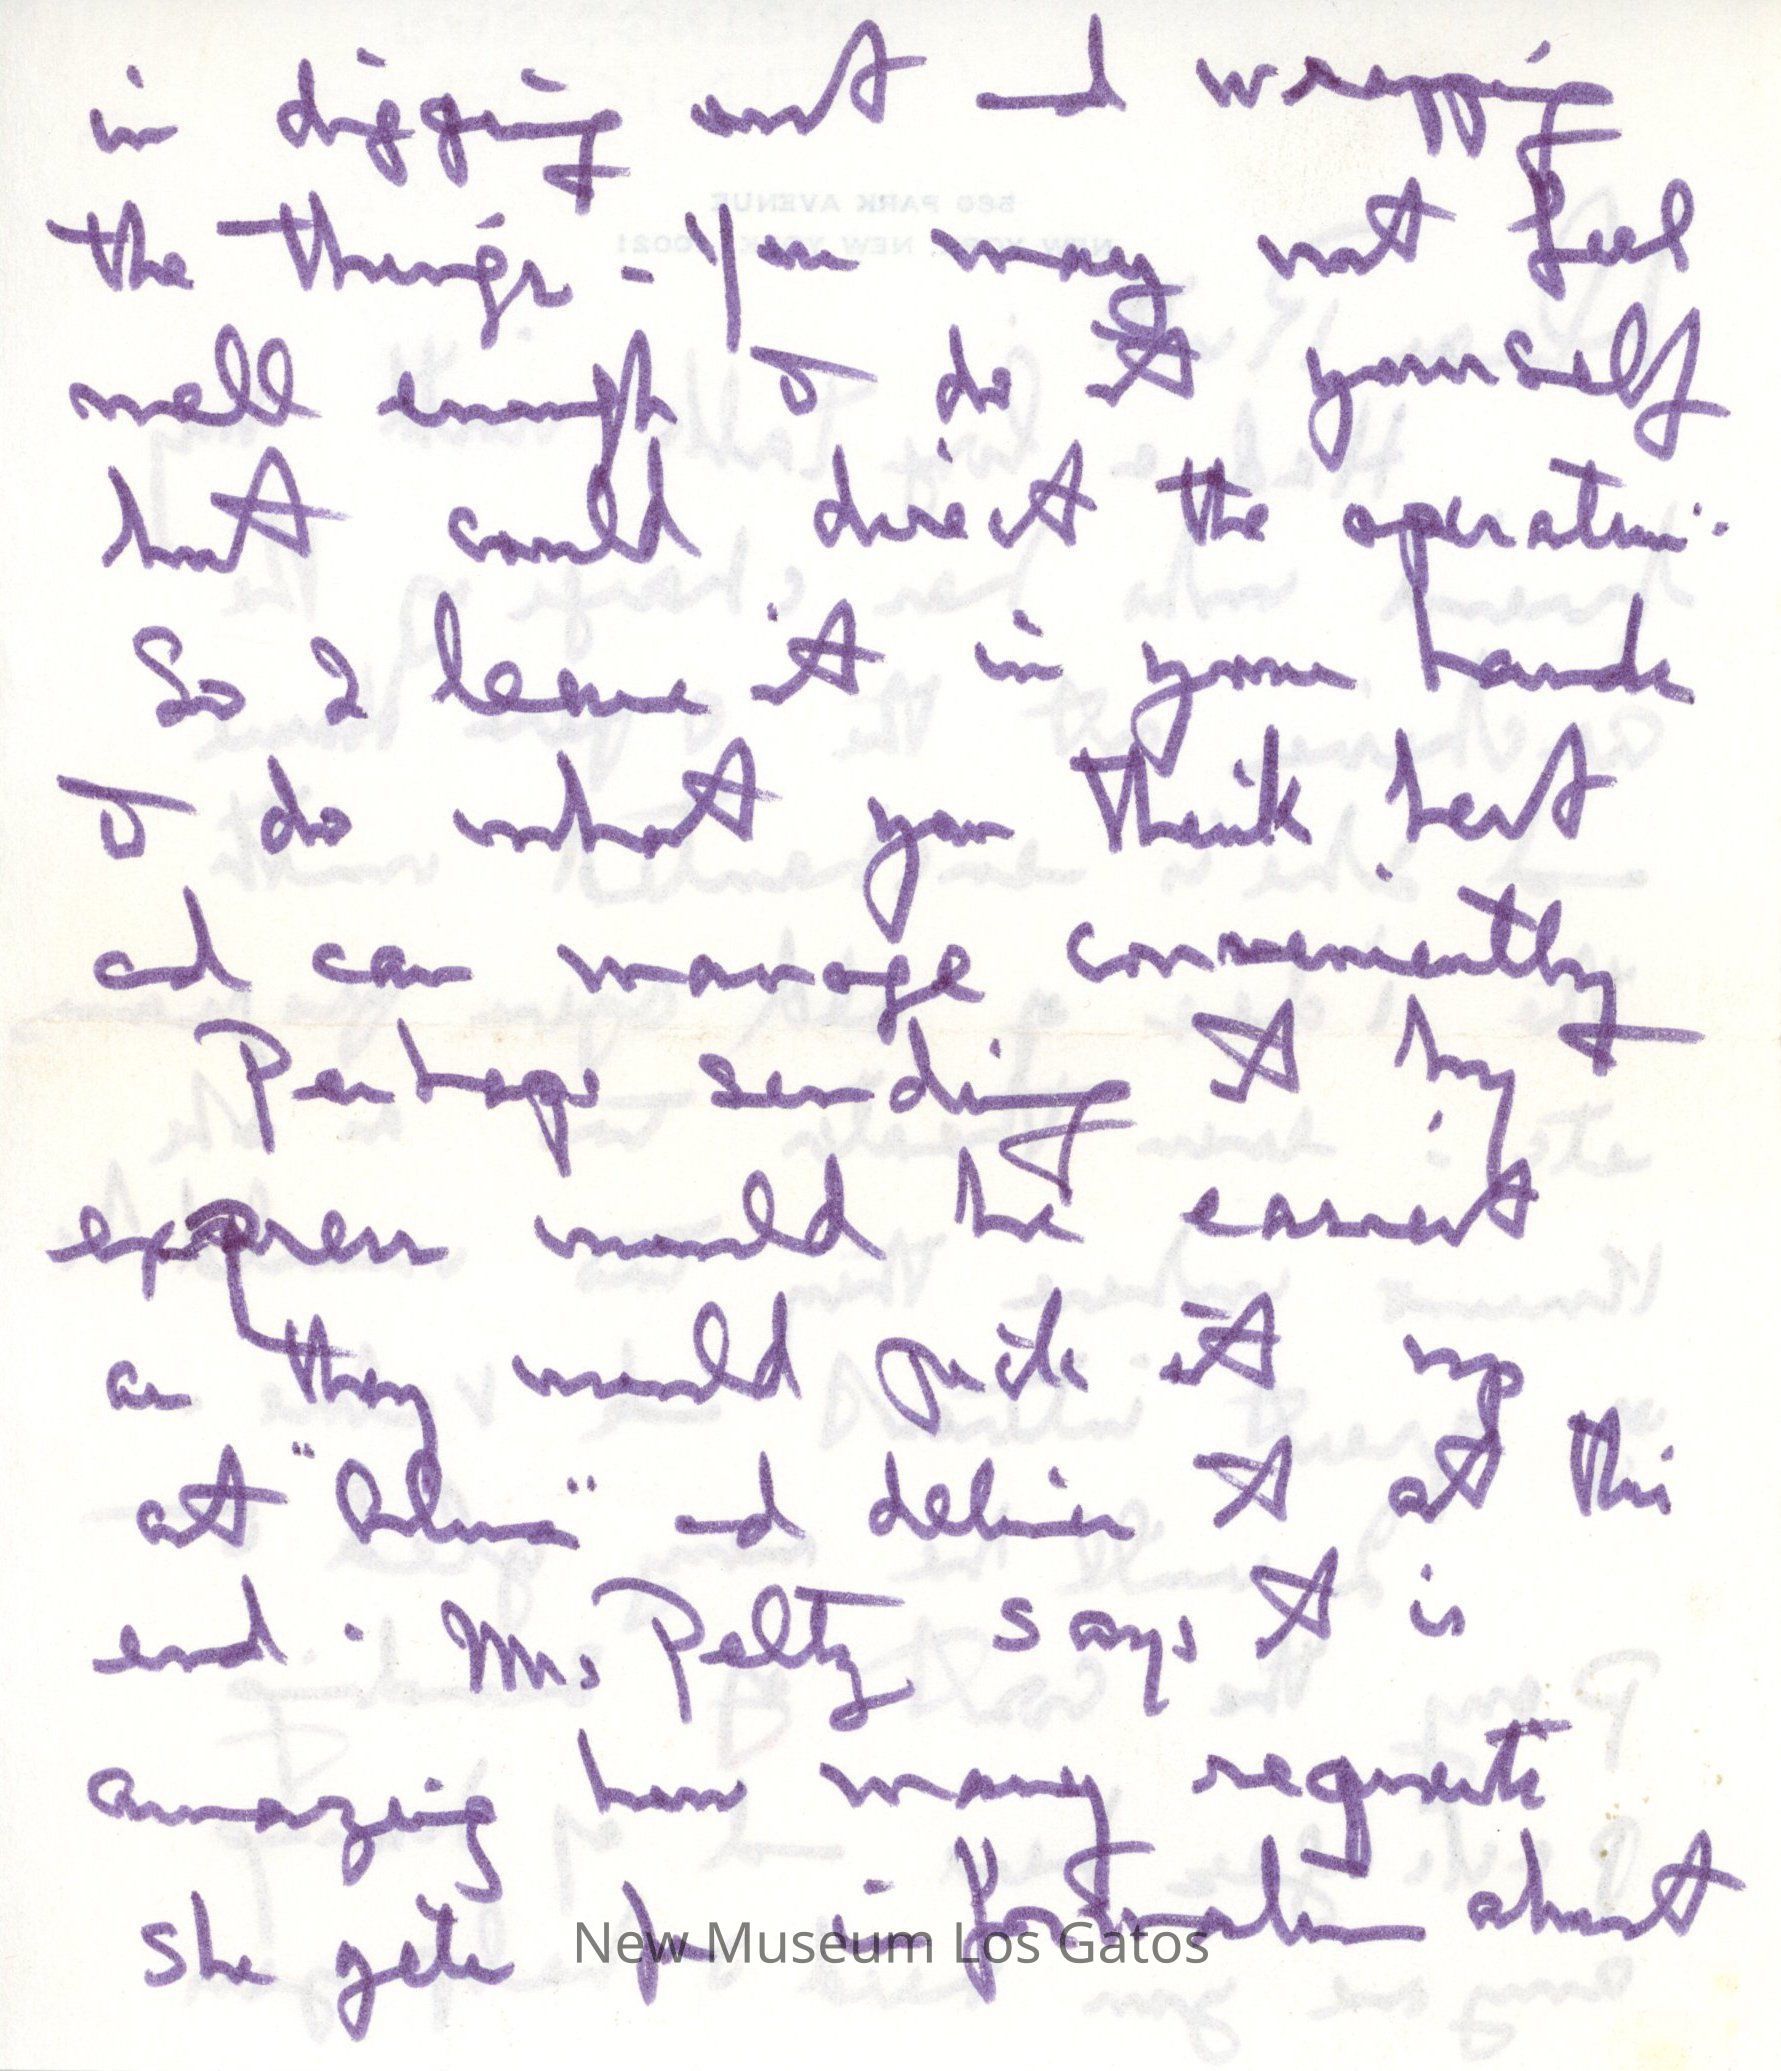 in digging out and wrapping
the things - You may not feel
well enough to do it yourself
but could direct the operation.
So I leave it in your hands
to do what you think best
and can manage conveniently.
Perhaps sending it by
express would be easiest
as they would pick it up
at "Alma" and deliver it at this
end. Mrs Peltz says it is
amazing how many requests
she gets for information about
New Museum Los Gatos